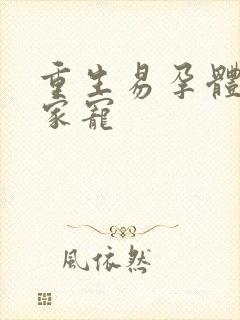 重生易孕體
家寵
風依然